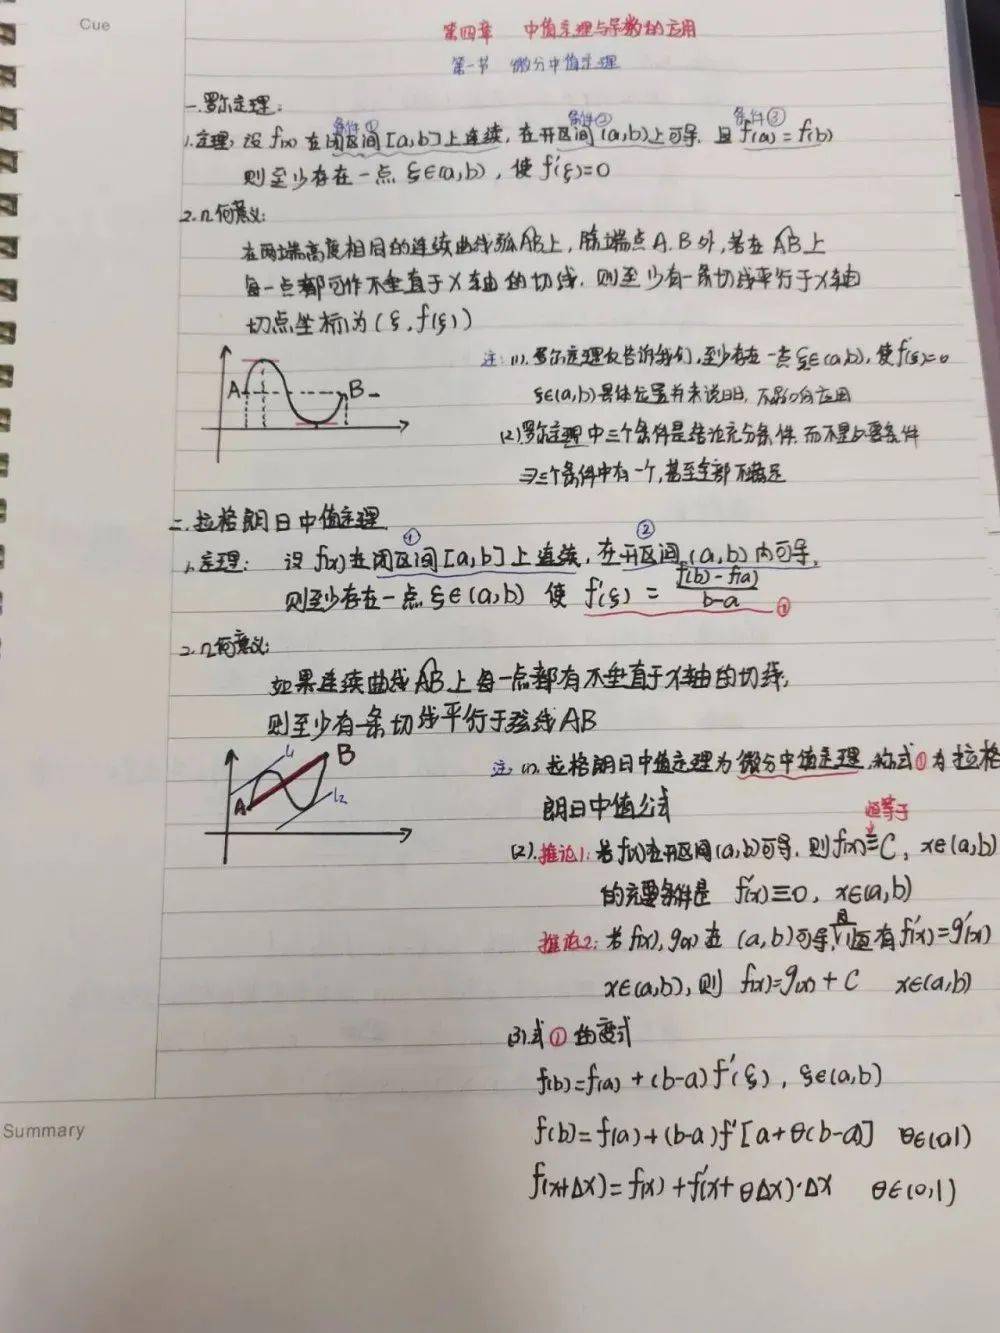 Cue
第四章 中值定理与导数的应用
第一节 微分中值定理
一.罗尔定理:
条件① 条件② 条件③
1.定理: 设 f(x) 在闭区间[a,b]上连续, 在开区间(a,b)上可导, 且 f(a)=f(b)
则至少存在一点 ξ∈(a,b), 使 f'(ξ)=0
2.几何意义:
在两端高度相同的连续曲线弧AB上, 除端点A.B外, 若在AB上
每一点都可作不垂直于X轴的切线, 则至少有一条切线平行于X轴
切点坐标为(ξ,f(ξ))
注: (1). 罗尔定理仅告诉我们, 至少存在一点ξ∈(a,b), 使f'(ξ)=0
ξ∈(a,b)具体位置并未说明, 不影响应用
A B
(2)罗尔定理中三个条件是结论充分条件, 而不是必要条件
⇒三个条件中有一个, 甚至全部不满足
二.拉格朗日中值定理
① ②
1.定理: 设 f(x)在闭区间[a,b]上连续, 在开区间(a,b)内可导,
则至少存在一点 ξ∈(a,b) 使 f'(ξ) = f(b)-f(a) / b-a ①
2.几何意义:
如果连续曲线AB上每一点都有不垂直于x轴的切线,
则至少有一条切线平行于弦线AB
A B l₁ l₂
注: (1). 拉格朗日中值定理为微分中值定理, 称式①为拉格
朗日中值公式
恒等于
(2).推论1: 若f(x)在开区间(a,b)可导, 则f(x)≡C, x∈(a,b)
的充要条件是 f'(x)≡0, x∈(a,b)
推论2: 若f(x), g(x)在 (a,b)可导, 且恒有f'(x)=g'(x)
x∈(a,b), 则 f(x)=g(x)+C x∈(a,b)
(3).式①的变式
f(b)=f(a)+(b-a)f'(ξ), ξ∈(a,b)
f(b)=f(a)+(b-a)f'[a+θ(b-a)] θ∈(0,1)
f(x+Δx)=f(x)+f'(x+θΔx)·Δx θ∈(0,1)
Summary